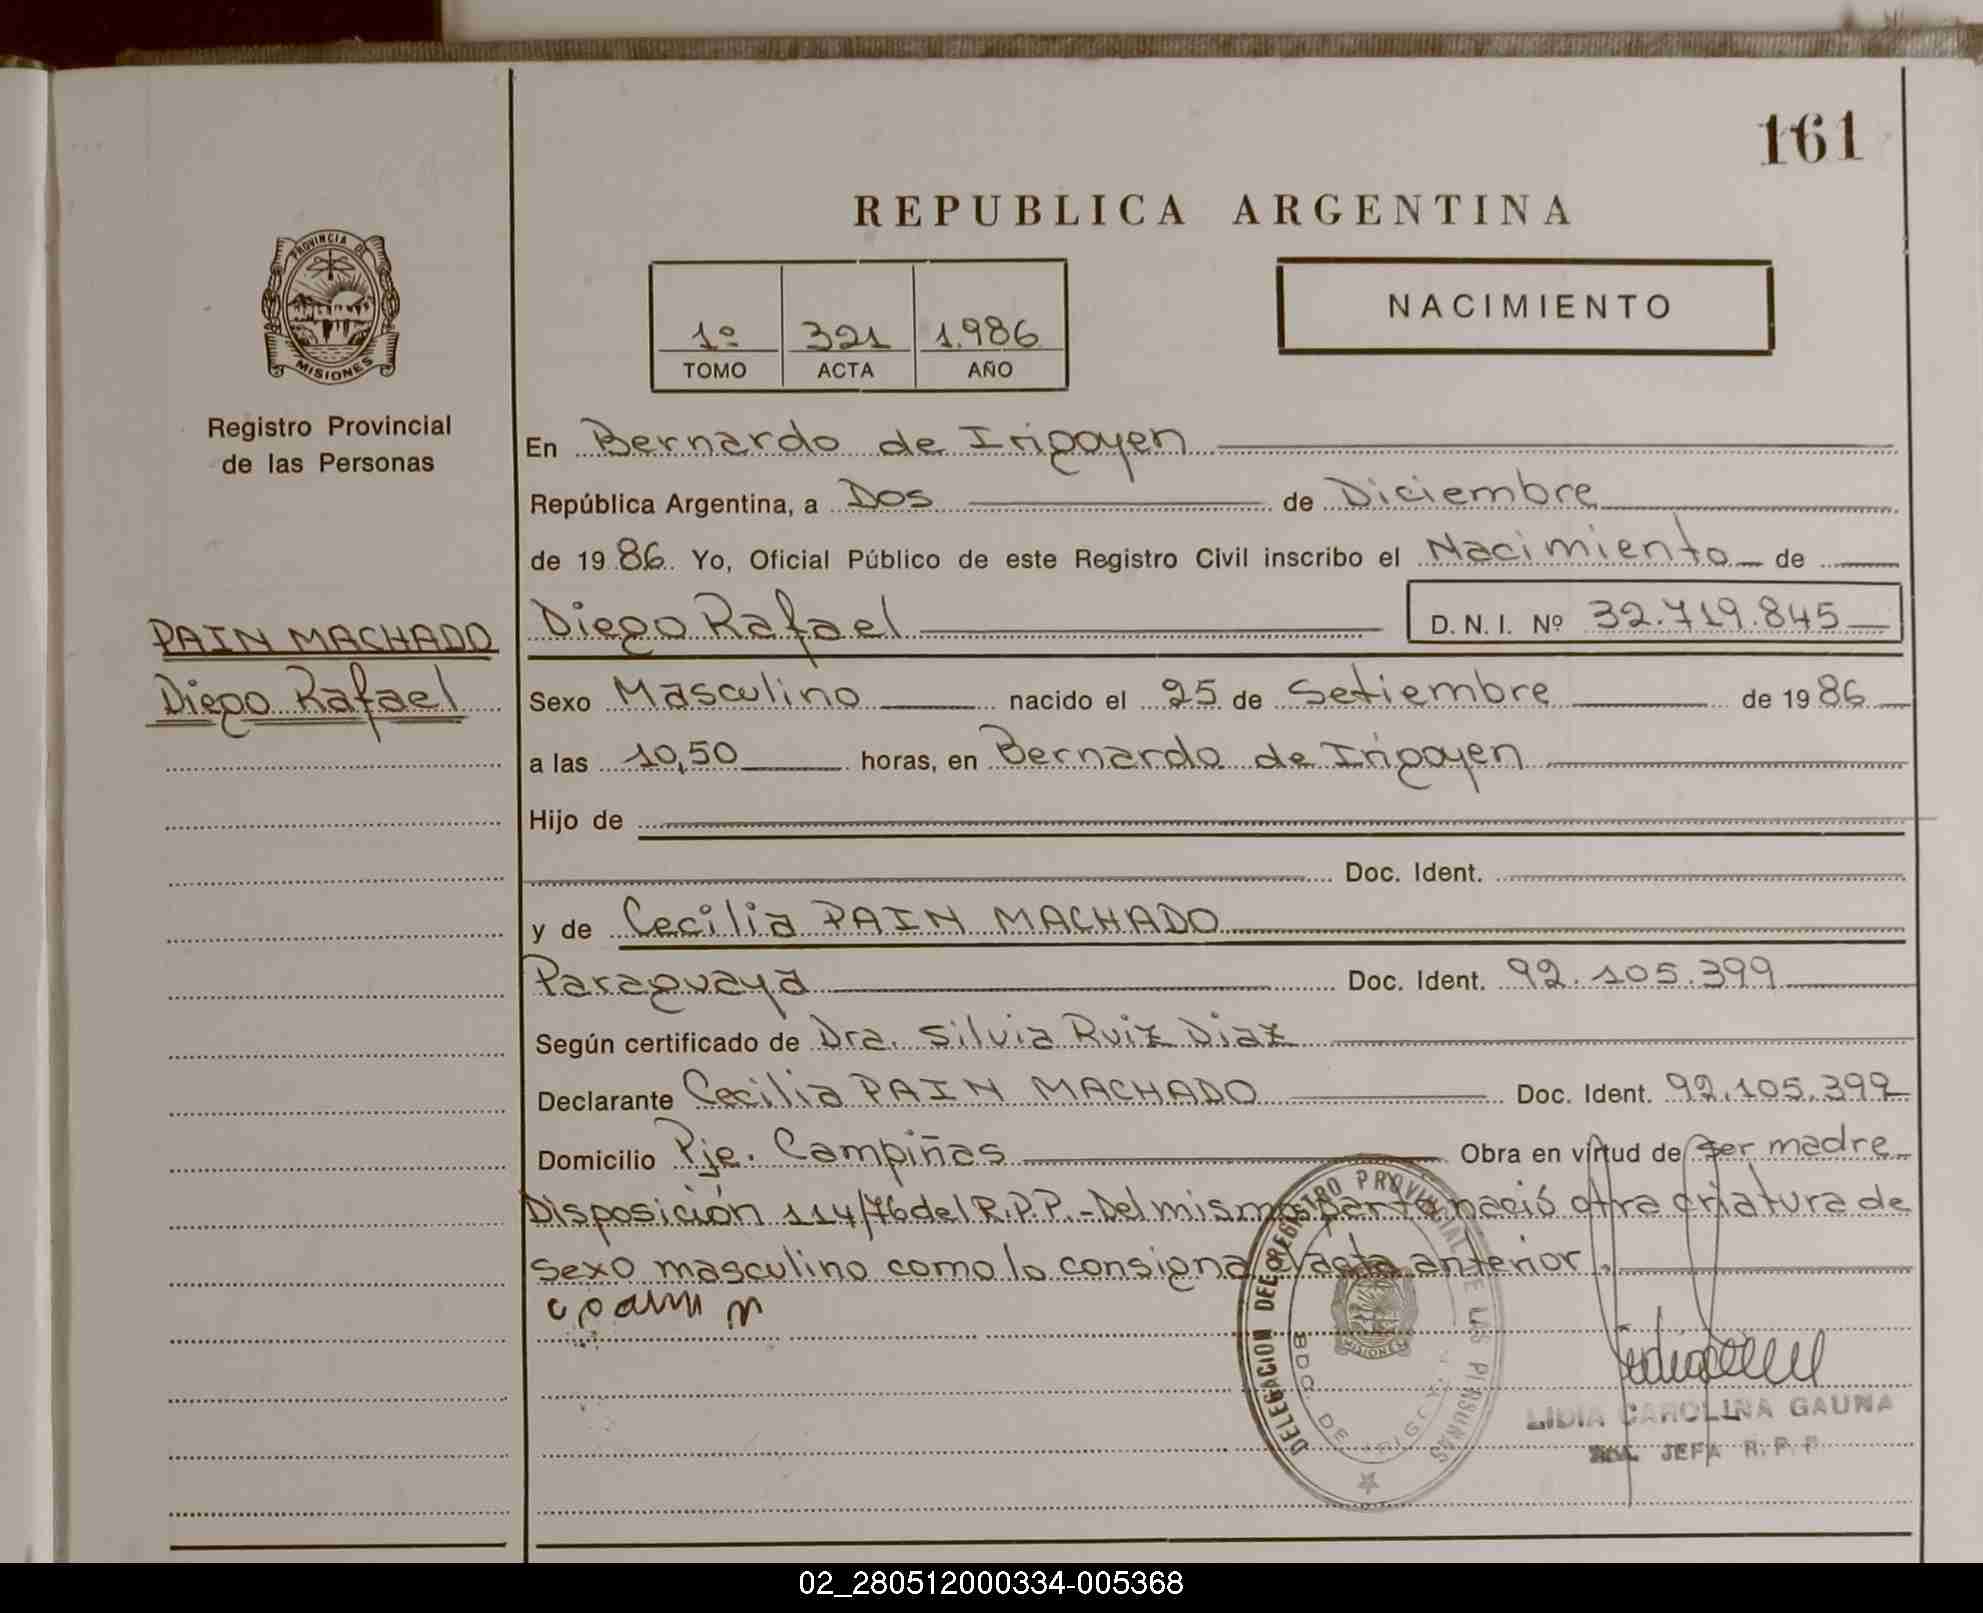 161
REPUBLICA ARGENTINA
PROVINCIA DE
MISIONES
1º 321 1.986
TOMO ACTA AÑO
NACIMIENTO
Registro Provincial
de las Personas
PAIN MACHADO
Diego Rafael
En Bernardo de Irigoyen
República Argentina, a Dos de Diciembre
de 1986. Yo, Oficial Público de este Registro Civil inscribo el Nacimiento de
Diego Rafael D. N. I. Nº 32.719.845
Sexo Masculino nacido el 25 de Setiembre de 1986
a las 10,50 horas, en Bernardo de Irigoyen
Hijo de
Doc. Ident.
y de Cecilia PAIN MACHADO
Paraguaya Doc. Ident. 92.105.399
Según certificado de Dra. Silvia Ruiz Diaz
Declarante Cecilia PAIN MACHADO Doc. Ident. 92.105.399
Domicilio Pje. Campiñas Obra en virtud de ser madre
Disposición 114/76 del R.P.P.-Del mismo parto nació otra criatura de
sexo masculino como lo consigna el acta anterior.
DELEGACION DEL REGISTRO PROVINCIAL DE LAS PERSONAS
BDO. DE IRIGOYEN
MISIONES
LIDIA CAROLINA GAUNA
JEFA R. P. P.
02_280512000334-005368